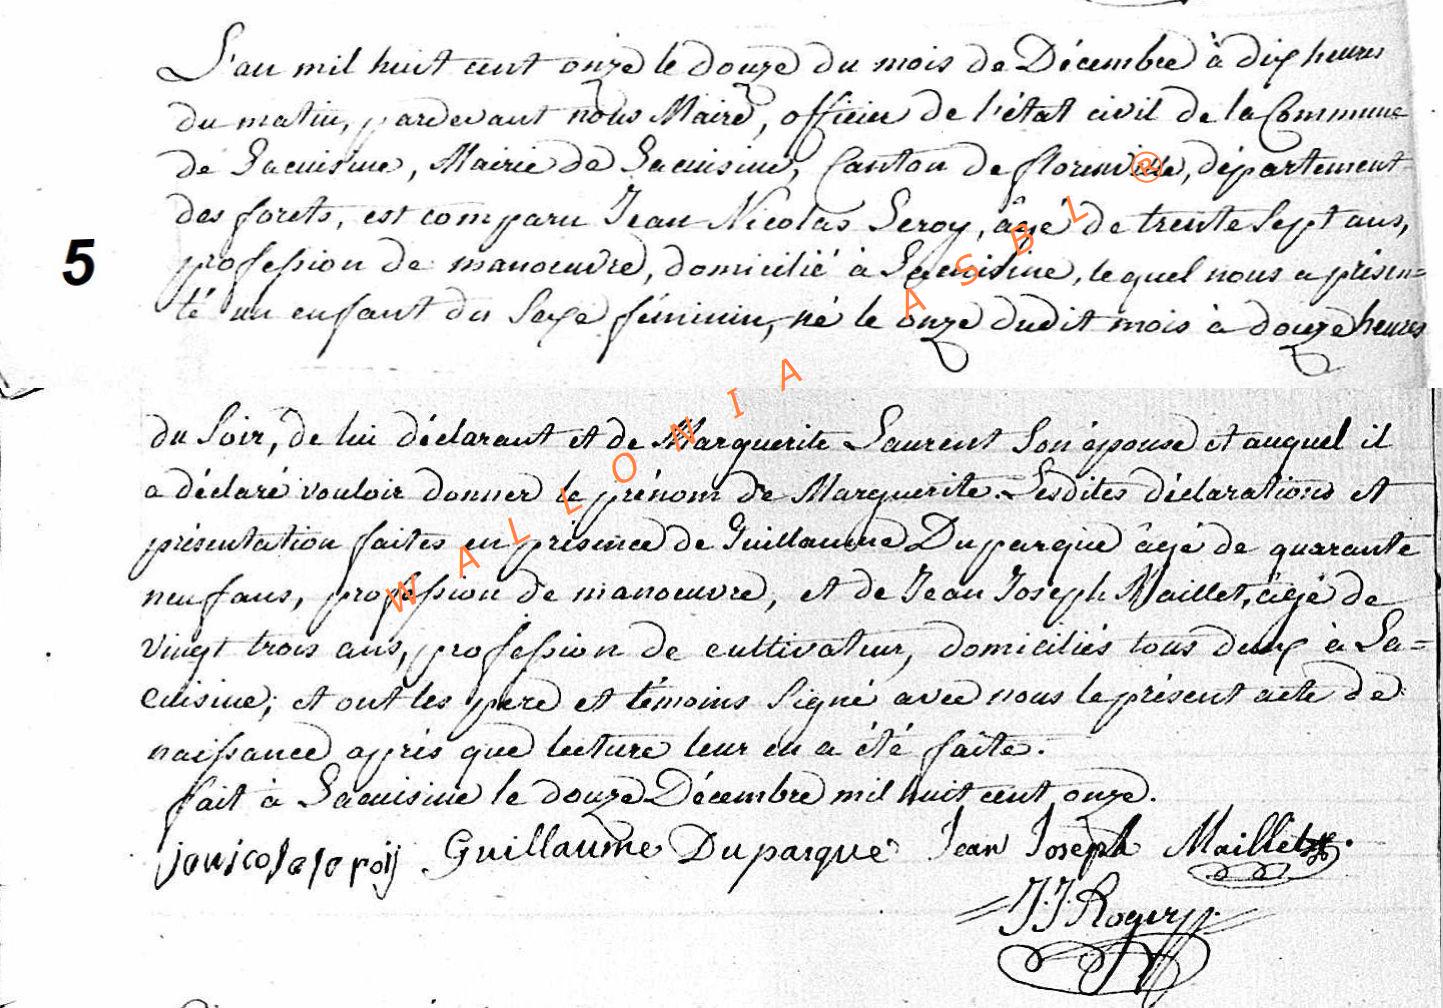 L'an mil huit cent onze le douze du mois de Décembre à dix heures
du matin, pardevant nous Maire, officier de l'état civil de la Commune
de Lacuisine, Mairie de Lacuisine, Canton de florenville, département
des forets, est comparu Jean Nicolas Leroy, âgé de trente sept ans,
5
profession de manoeuvre, domicilié à Lacuisine, lequel nous a présen=
té un enfant du Sexe féminin, né le onze dudit mois à douze heures
du Soir, de lui déclarant et de Marguerite Laurent Son épouse et auquel il
a déclaré vouloir donner le prénom de Marguerite. Lesdites déclarations et
présentation faites en présence de Guillaume Duparque âgé de quarante
neuf ans, profession de manoeuvre, et de Jean Joseph Maillet, âgé de
vingt trois ans, profession de cultivateur, domiciliés tous deux à La=
cuisine; et ont les pere et témoins Signé avec nous le présent acte de
naissance après que lecture leur en a été faite.
fait à Lacuisine le douze Décembre mil huit cent onze.
Guillaume Duparque Jean Joseph Maillet
J. J. Roger
WALLONIA ASBL ®